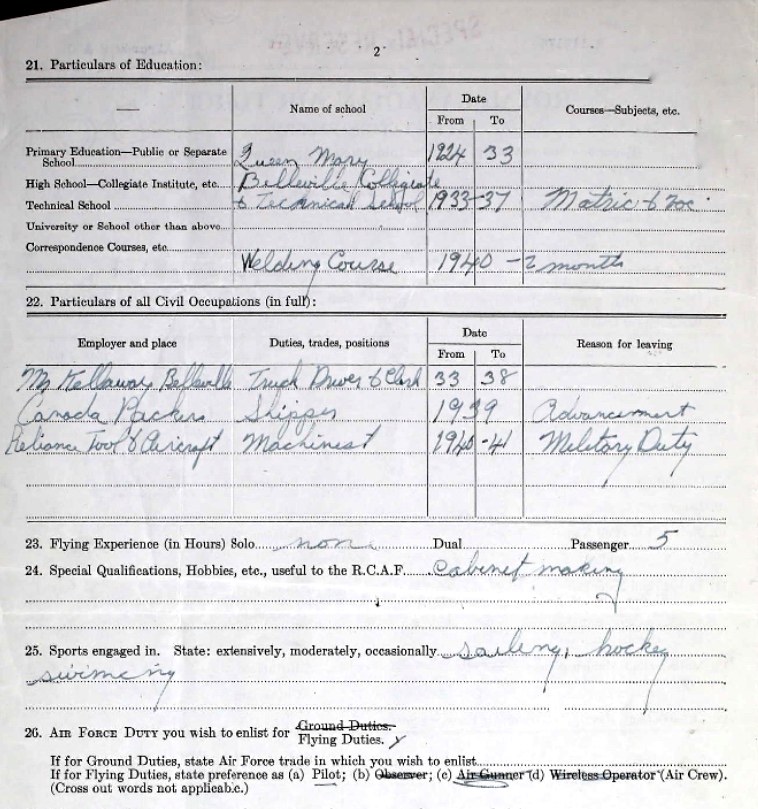 2
21. Particulars of Education:
Name of school
Date
From To
Courses—Subjects, etc.
Primary Education—Public or Separate School Queen Mary 1924 33
High School—Collegiate Institute, etc. Belleville Collegiate
Technical School & Technical School 1933-37 Matric & Voc
University or School other than above
Correspondence Courses, etc.
Welding Course 1940 - 2 months
22. Particulars of all Civil Occupations (in full):
Employer and place
Duties, trades, positions
Date
From To
Reason for leaving
Kellaway Belleville Truck Driver & Clerk 33 38
Canada Packers Shipper 1939 Advancement
Reliance Tool & Aircraft Machinest 1940-41 Military Duty
23. Flying Experience (in Hours) Solo non Dual Passenger 5
24. Special Qualifications, Hobbies, etc., useful to the R.C.A.F. Cabinet making
25. Sports engaged in. State: extensively, moderately, occasionally sailing, hockey
swimcing
26. AIR FORCE DUTY you wish to enlist for Ground Duties.
Flying Duties.
If for Ground Duties, state Air Force trade in which you wish to enlist
If for Flying Duties, state preference as (a) Pilot; (b) Observer; (c) Air Gunner (d) Wireless Operator (Air Crew).
(Cross out words not applicable.)